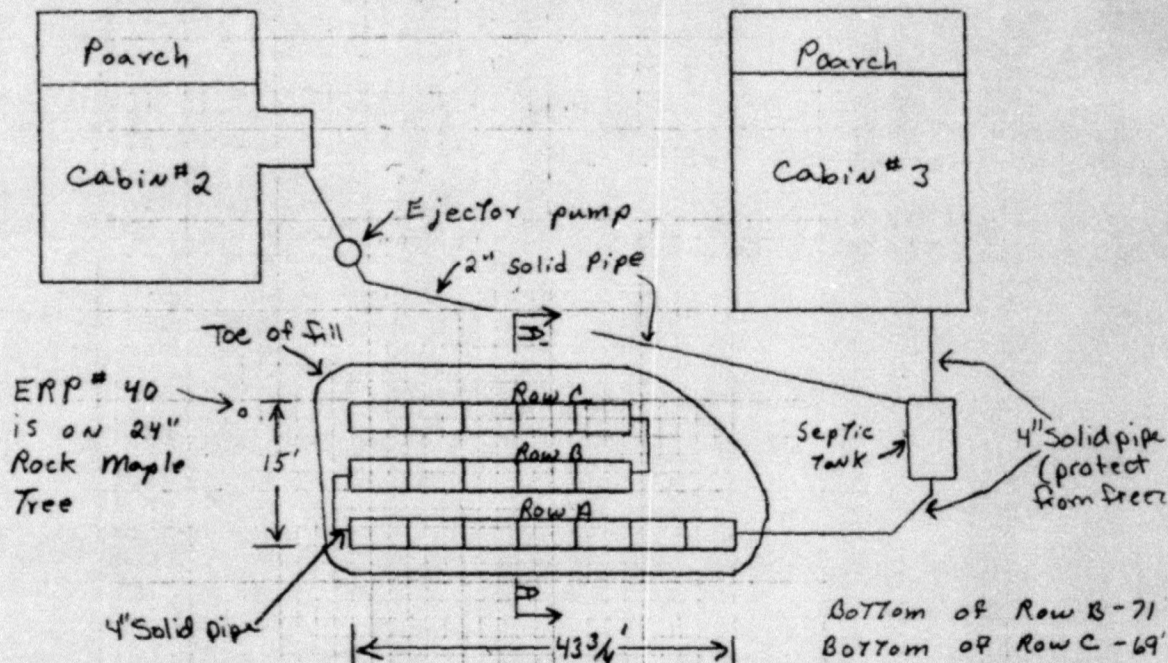 Poarch
Poarch
Cabin #2
Cabin # 3
Ejector pump
2" solid pipe
Toe of fill
A'
ERP # 40
is on 24"
Rock Maple
Tree
15'
Row C
Row B
Row A
Septic
Tank
4" Solid pipe
(protect
from freez
4" Solid pipe
A
43 3/4'
Bottom of Row B - 71
Bottom of Row C - 69'